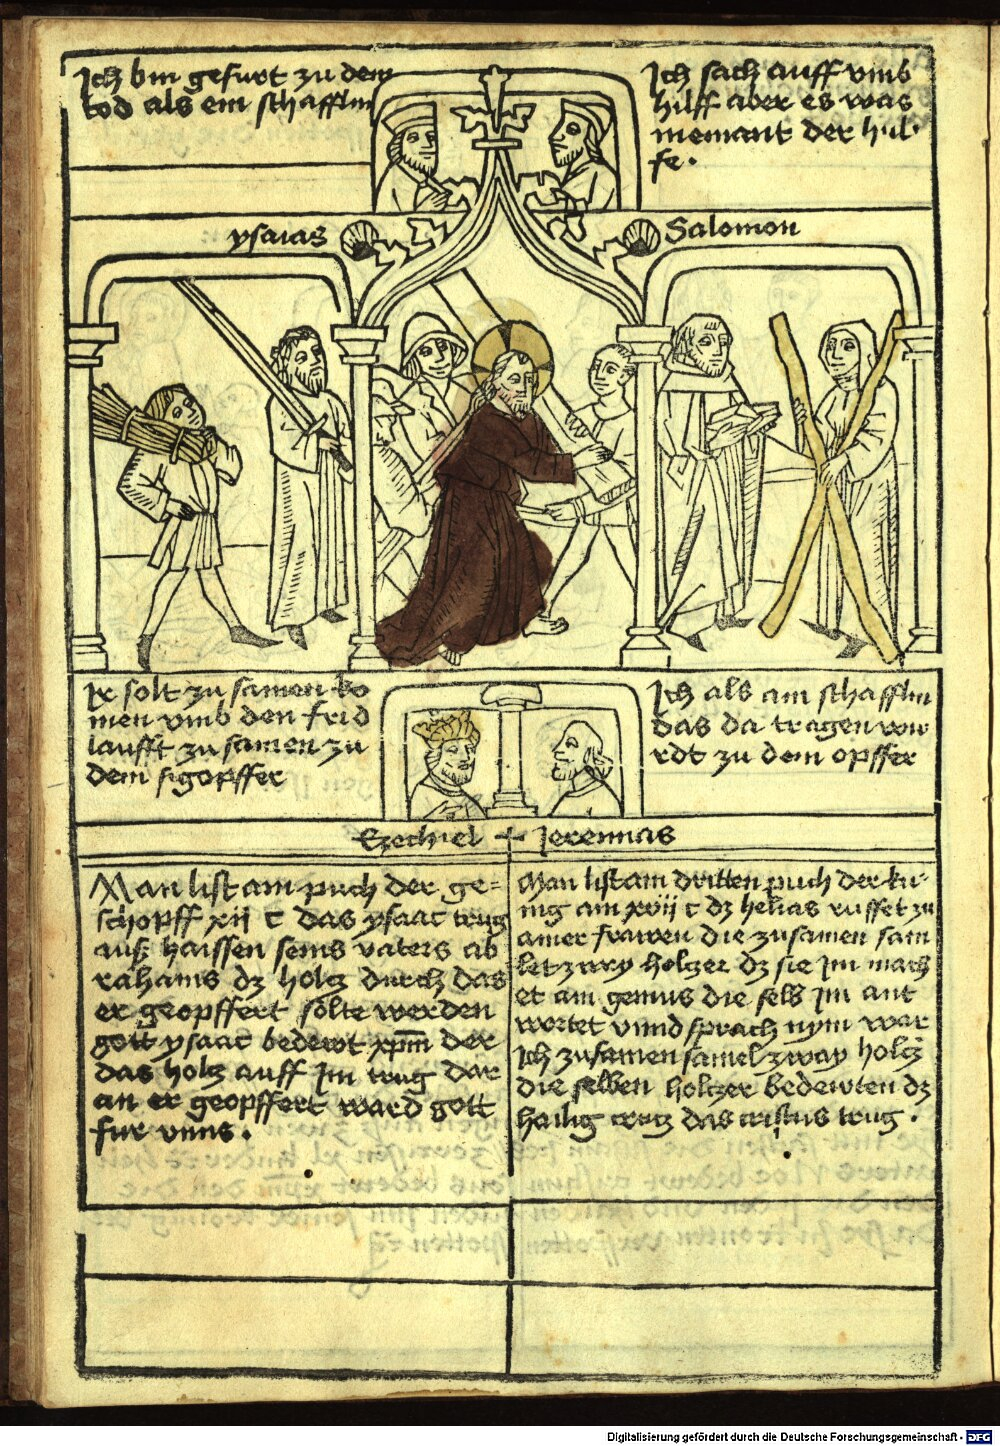 Ich bin gefurt zu dem
tod als ein schafflin
Ich sach auff vmb
hilff aber es was
niemant der hul-
fe.
ysaias
Salomon
Ir solt zu samen ko
men vmb den frid
laufft zu samen zu
dem sigopffer
Ich als ain schafflin
das da tragen wu
rdt zu dem opffer
Ezechiel + Jeremias
Man list am puch der ge=
schopff xij c das ysaac trug
auß haissen seins vaters ab
rahams dz holtz durch das
er geopffert solte werden
gott ysaac bedewt xpm der
das holtz auff im trug dar
an er geopffert ward gott
fur vnns.
Man list am dritten puch der ku-
nig am xvij c dz helias ruffet zu
ainer frawen die zusamen sam
let zwey holtzer dz sie im mach
et ain gemus die selb im ant
wortet vnnd sprach nym war
Ich zusamen samel zway holtz
die selben holtzer bedewten dz
hailig creutz das cristus trug.
Digitalisierung gefördert durch die Deutsche Forschungsgemeinschaft - DFG